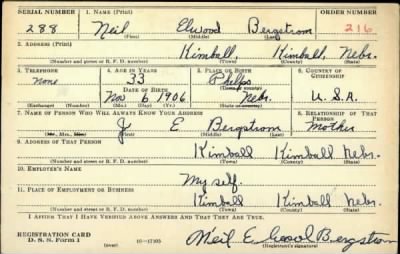 SERIAL NUMBER 1. NAME (Print) ORDER NUMBER
288 Neil Elwood Bergstrom 216
(First) (Middle) (Last)
2. ADDRESS (Print)
Kimball, Kimball, Nebr.
(Number and street or R. F. D. number) (Town) (County) (State)
3. TELEPHONE 4. AGE IN YEARS 5. PLACE OF BIRTH 6. COUNTRY OF CITIZENSHIP
None 33 Phelps
DATE OF BIRTH (Town or county)
Nov 6 1906 Nebr. U.S.A.
(Exchange) (Number) (Mo.) (Day) (Yr.) (State or country)
7. NAME OF PERSON WHO WILL ALWAYS KNOW YOUR ADDRESS 8. RELATIONSHIP OF THAT PERSON
J E Bergstrom Mother
(Mr., Mrs., Miss) (First) (Middle) (Last)
9. ADDRESS OF THAT PERSON
Kimball Kimball Nebr.
(Number and street or R. F. D. number) (Town) (County) (State)
10. EMPLOYER'S NAME
My self.
11. PLACE OF EMPLOYMENT OR BUSINESS
Kimball Kimball Nebr.
(Number and street or R. F. D. number) (Town) (County) (State)
I AFFIRM THAT I HAVE VERIFIED ABOVE ANSWERS AND THAT THEY ARE TRUE.
REGISTRATION CARD
D. S. S. Form 1 (over) 16—17105 Neil Elwood Bergstrom
(Registrant's signature)